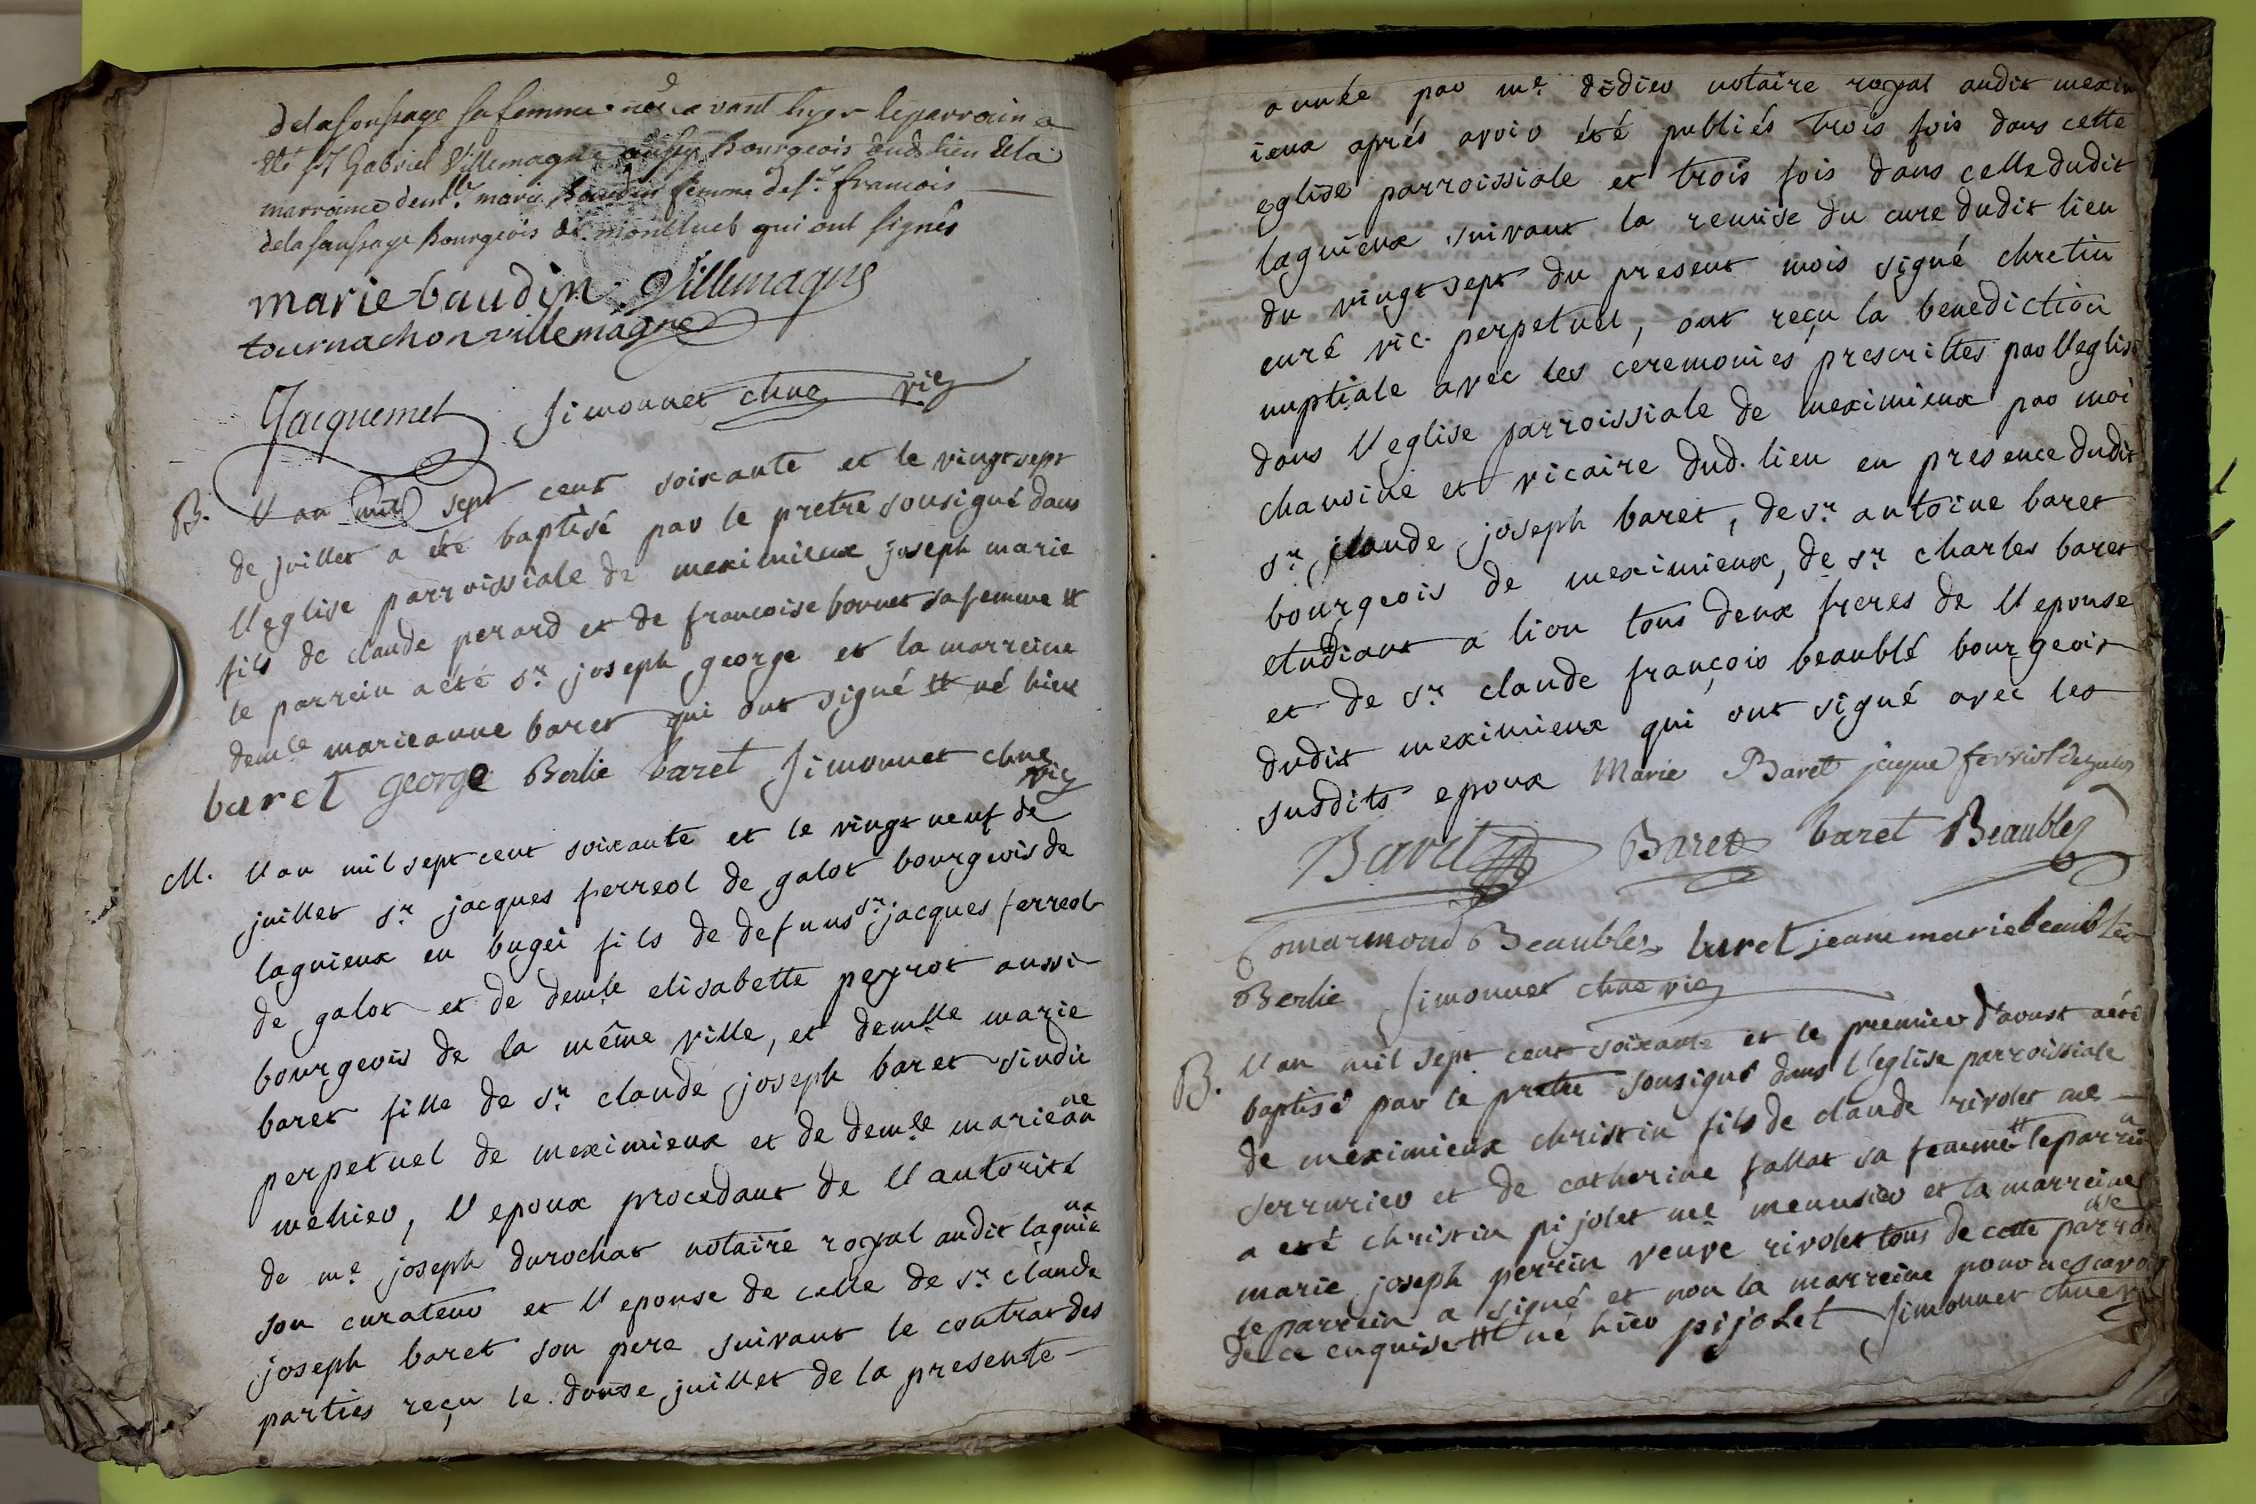 delafonssage sa femme née avant hyer le parrain a
été sr Gabriel Villemagne aussy Bourgeois dud. lien & la
marraine demlle. marie Baudin femme de sr. francois
delafaussage Bourgeois de montluel qui ont signés
marie baudin Villemagne
tournachon villemagne
Jacquemet Simonnet chne vic
B. l'an mil sept cent soixante et le vingt sept
de juillet a été baptisé par le pretre sousigné dans
l'eglise parroissiale de meximieux joseph marie
fils de claude perard et de francoise bonnet sa femme #
le parrein a été sr. joseph george et la marreine
demle marieanne baret qui ont signé # né hier
baret george Berlie baret Simonnet chne
vic
M. l'an mil sept cent soixante et le vingt neuf de
juillet sr. jacques ferreol de galot bourgeois de
lagnieux en bugei fils de defunt sr. jacques ferreol
de galot et de demle elisabette peyrot aussi
bourgeois de la même ville, et demlle marie
baret fille de sr. claude joseph baret sindic
perpetuel de meximieux et de demle marieanne
mehier, l'epoux procedant de l'autorité
de me. joseph durochat notaire royal audit lagnieux
son curateur et l'epouse de celle de sr. claude
joseph baret son pere suivant le contrat des
parties reçu le douse juillet de la presente
année par me. dédieu notaire royal audit mexim
ieux aprés avoir été publiés trois fois dans cette
eglise parroissiale et trois fois dans celle dudit
lagnieux suivant la remise du curé dudit lieu
du vingt sept du present mois signé chretin
curé vic. perpetuel, ont reçu la benediction
nuptiale avec les ceremonies prescrittes par l'eglise
dans l'eglise parroissiale de meximieux par moi
chanoine et vicaire dud. lieu en presence dudit
sr. claude joseph baret, de sr. antoine baret
bourgeois de meximieux, de sr. charles baret
etudiant a lion tous deux freres de l'epouse
et de sr. claude françois beaublé bourgeois
dudit meximieux qui ont signé avec les
susdits epoux Marie Baret jaque ferriol degalot
Baret Baret baret Beaublez
Comarmond Beaublez baret jeanne marie beaublez
Berlie Simonnet chne vic
B. l'an mil sept cent soixante et le premier d'aoust a été
baptisé par le pretre sousigné dans l'eglise parroissiale
de meximieux christin fils de claude rivolet me
serrurier et de catherine fallat sa femme # le parrein
a eté christin pijolet me menusier et la marreine
marie joseph perrin veuve rivolet tous de cette parroisse
le parrein a signé et non la marreine pour ne scavoir
de ce enquise # né hier pijolet Simonnet chne vic